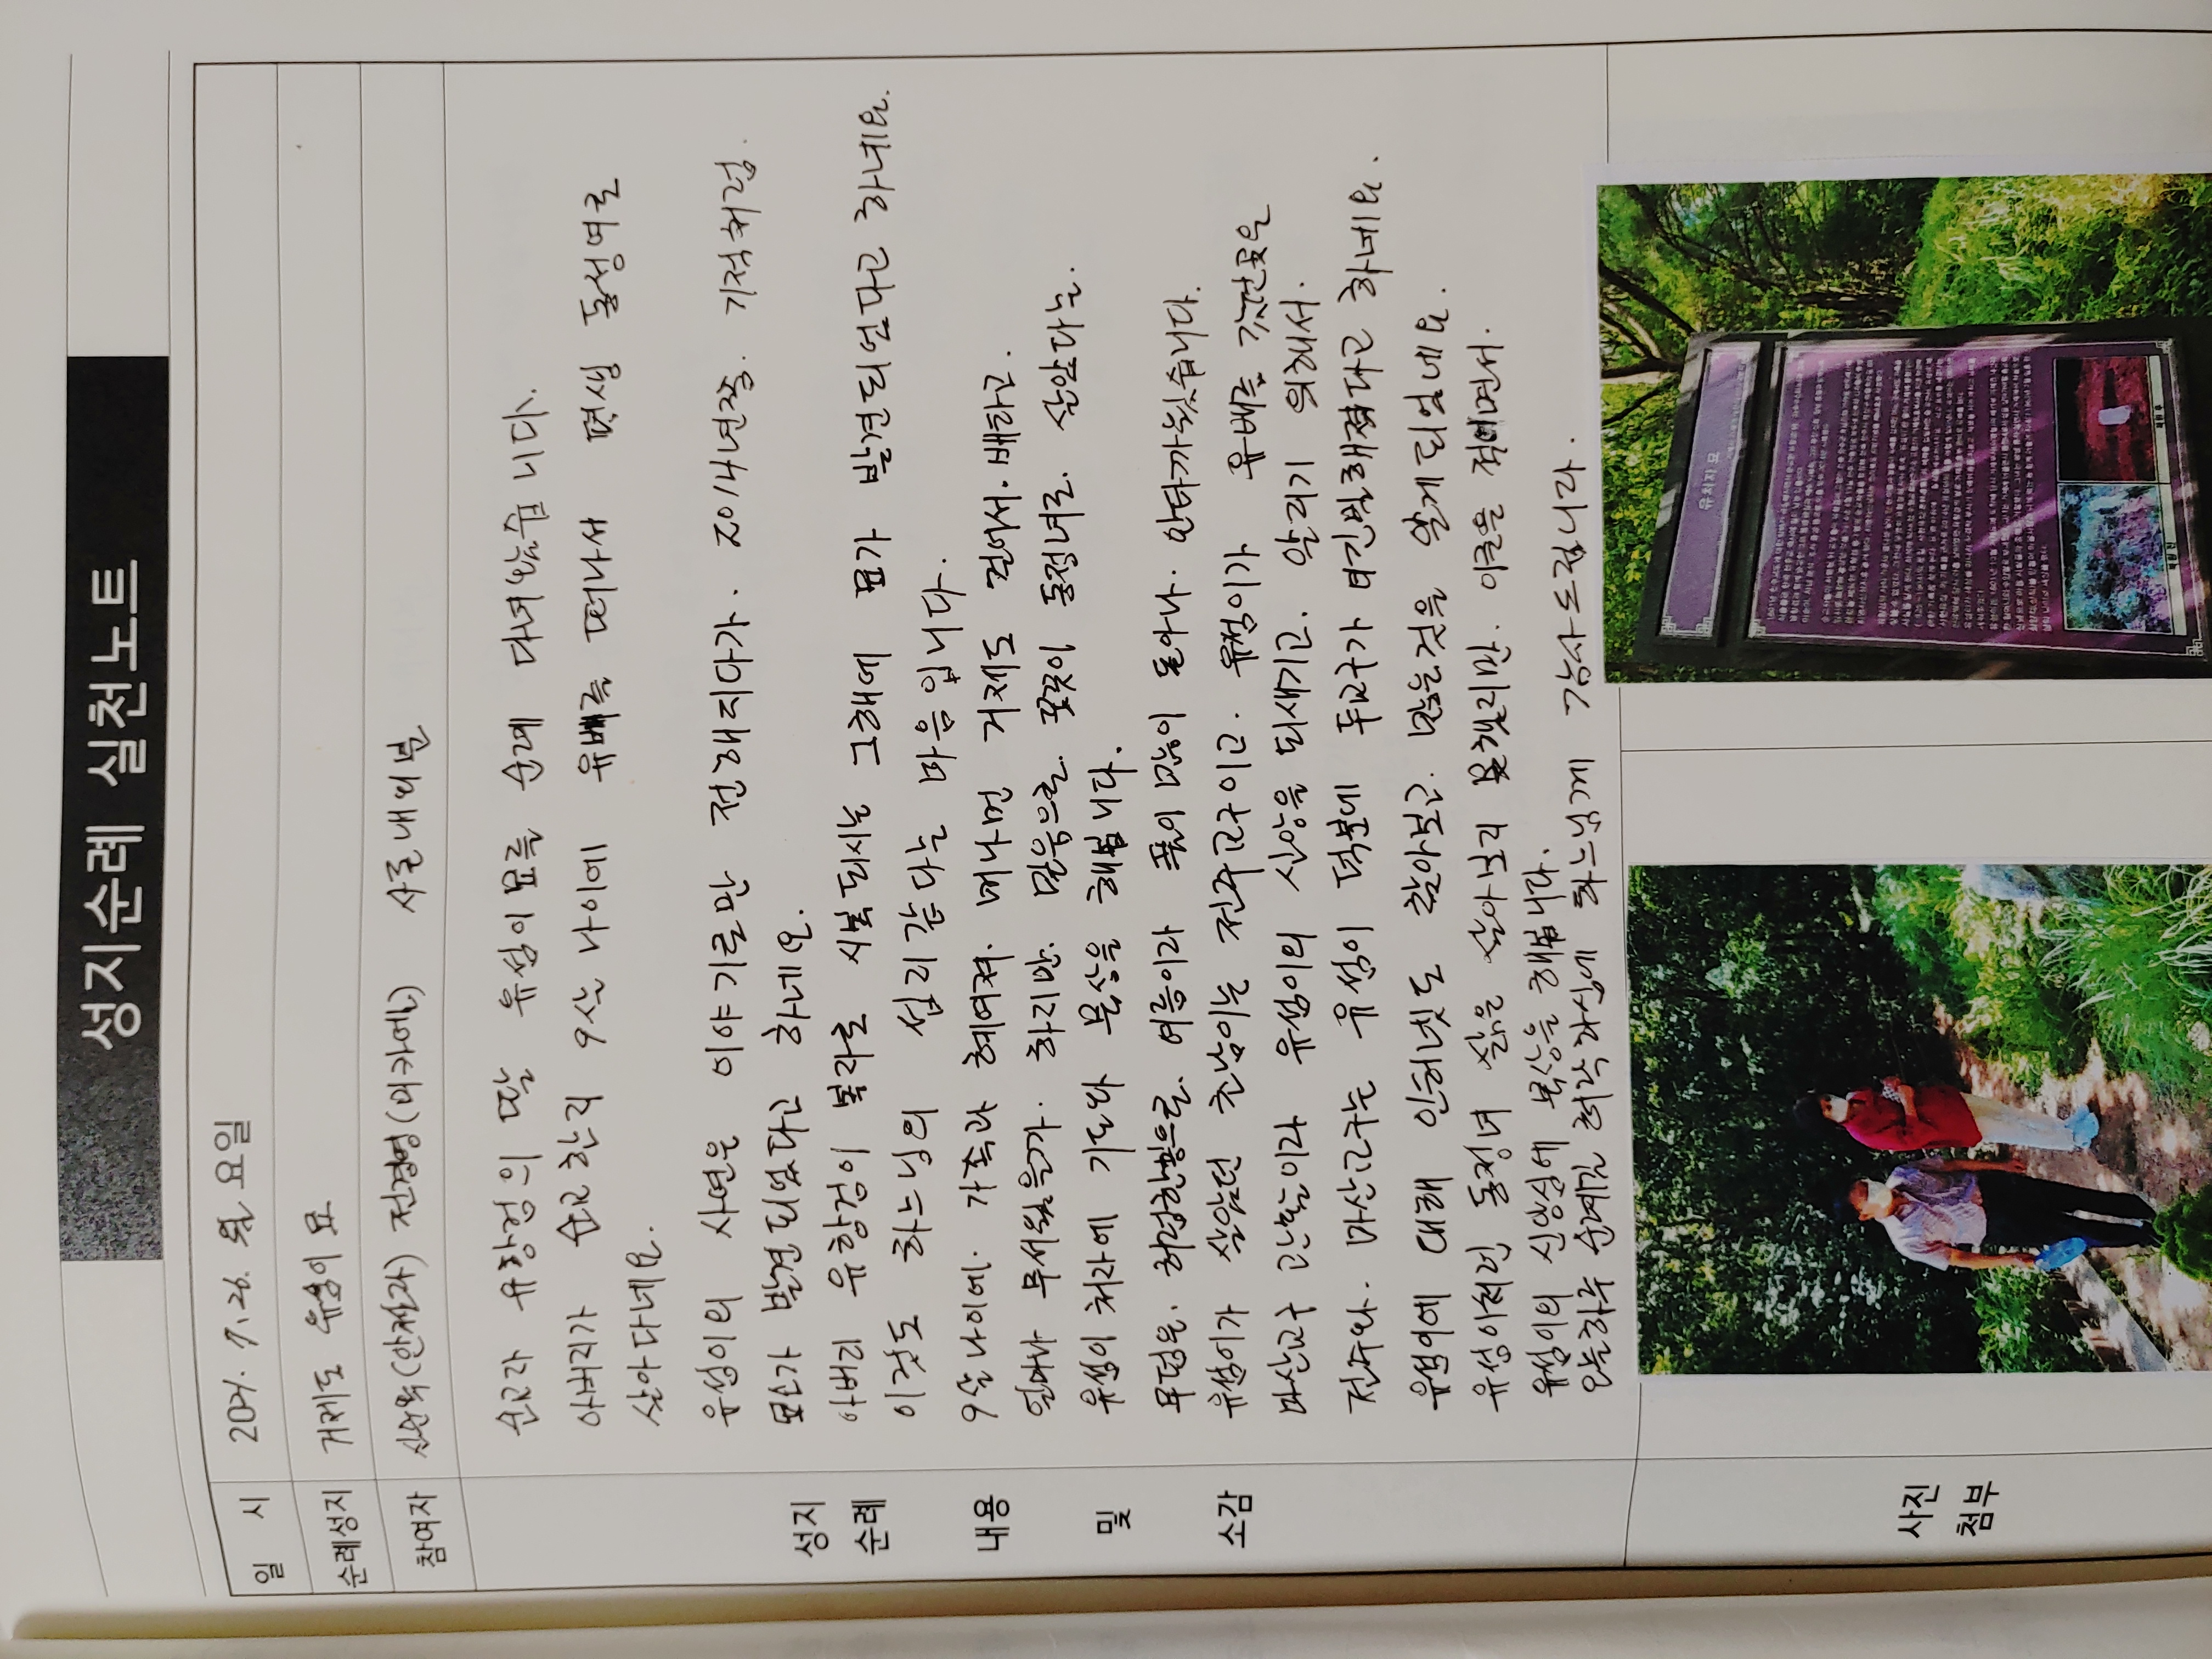 성지순례 실천노트
일 시 2021. 7. 26. 월 요일
순례성지 거제도 유섬이 묘
참여자 (안젤라) (미카엘) 사로내외분
순교자 유항검의 딸 유섬이 묘를 순례 다녀왔습니다.
아버지가 순교한뒤 9살 나이에 유배를 떠나서 평생 동정녀로
살아다네요.
유섬이의 사연은 이야기로만 전해지다가. 2014년쯤. 기적처럼
묘소가 발견되었다고 하네요.
아버지 유항검이 복자로 시복되시는 그해에 묘가 발견되었다고 하네요.
이것도 하느님의 섭리같다는 마음입니다.
9살나이에. 가족과 헤어져. 머나먼 거제도 걸어서. 배타고.
얼마나 무서웠을가. 하지만. 믿음으로. 꿋꿋이 동정녀로. 살았다는.
유섬이 처자에 기도와 묵상을 해봅니다.
무덤은. 허렴함으로. 여름이라 풀이 많이 돋아나. 안타가웠습니다.
유섬이가 살았던 초남이는 전주교구이고. 유섬이가 유배를 갔던곳은
마산교구 관활이라 유섬이의 신앙을 되새기고. 알리기 위해서.
전주와. 마산교구는 유섬이 덕분에 두교구가 더긴밀해졌다고 하네요.
유섬이에 대해 인터넷도 찾아보고. 많은것을 알게되었네요.
유섬이처런 동정녀 삶을 살아보지 못했지만. 이글을 적으면서.
유섬이의 신앙심에 묵상을 해봅니다.
오늘하루 순례길 허락하심에 하느님게 감사드립니다.
성지
순례
내용
및
소감
사진
첨부
유처자 묘